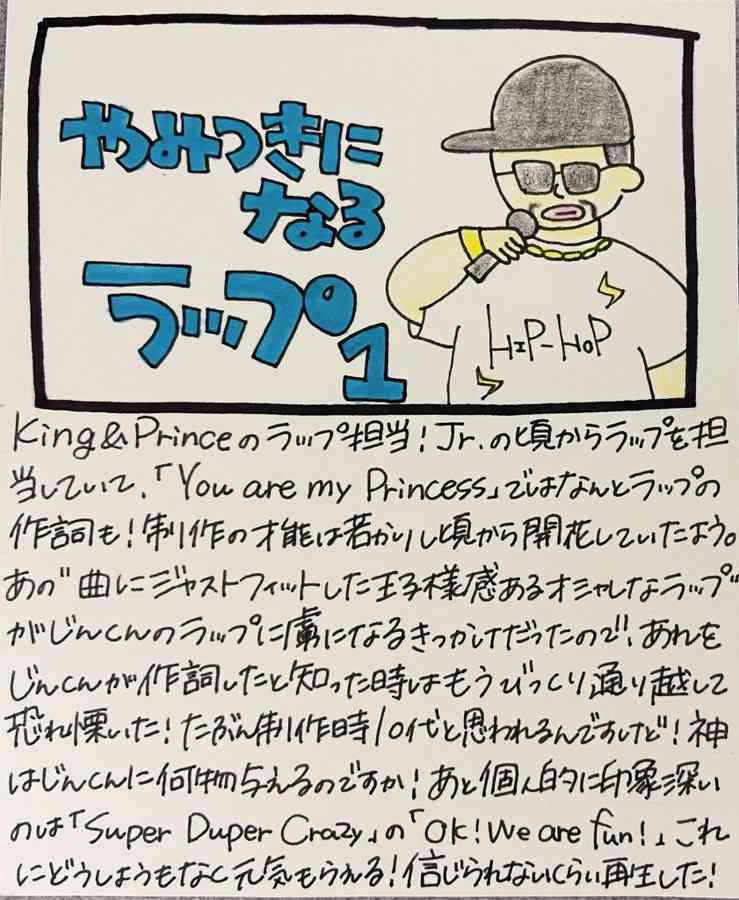 やみつきに
なる
ラップ1
HIP-HOP
King&Princeのラップ担当!Jr.の頃からラップを担
当していて、「You are my Princess」ではなんとラップの
作詞も!制作の才能は若かりし頃から開花していたよう。
あの"曲にジャストフィットした王子様感あるオシャレなラップ"
がじんくんのラップに虜になるきっかけだったので、あれを
じんくんが作詞したと知った時はもうびっくり通り越して
恐れ慄いた!たぶん制作時10代と思われるんですけど!神
はじんくんに何物与えるのですか!あと個人的に印象深い
のは「Super Duper Crazy」の「OK!We are fun!」これ
にどうしようもなく元気もらえる!信じられないくらい再生した!